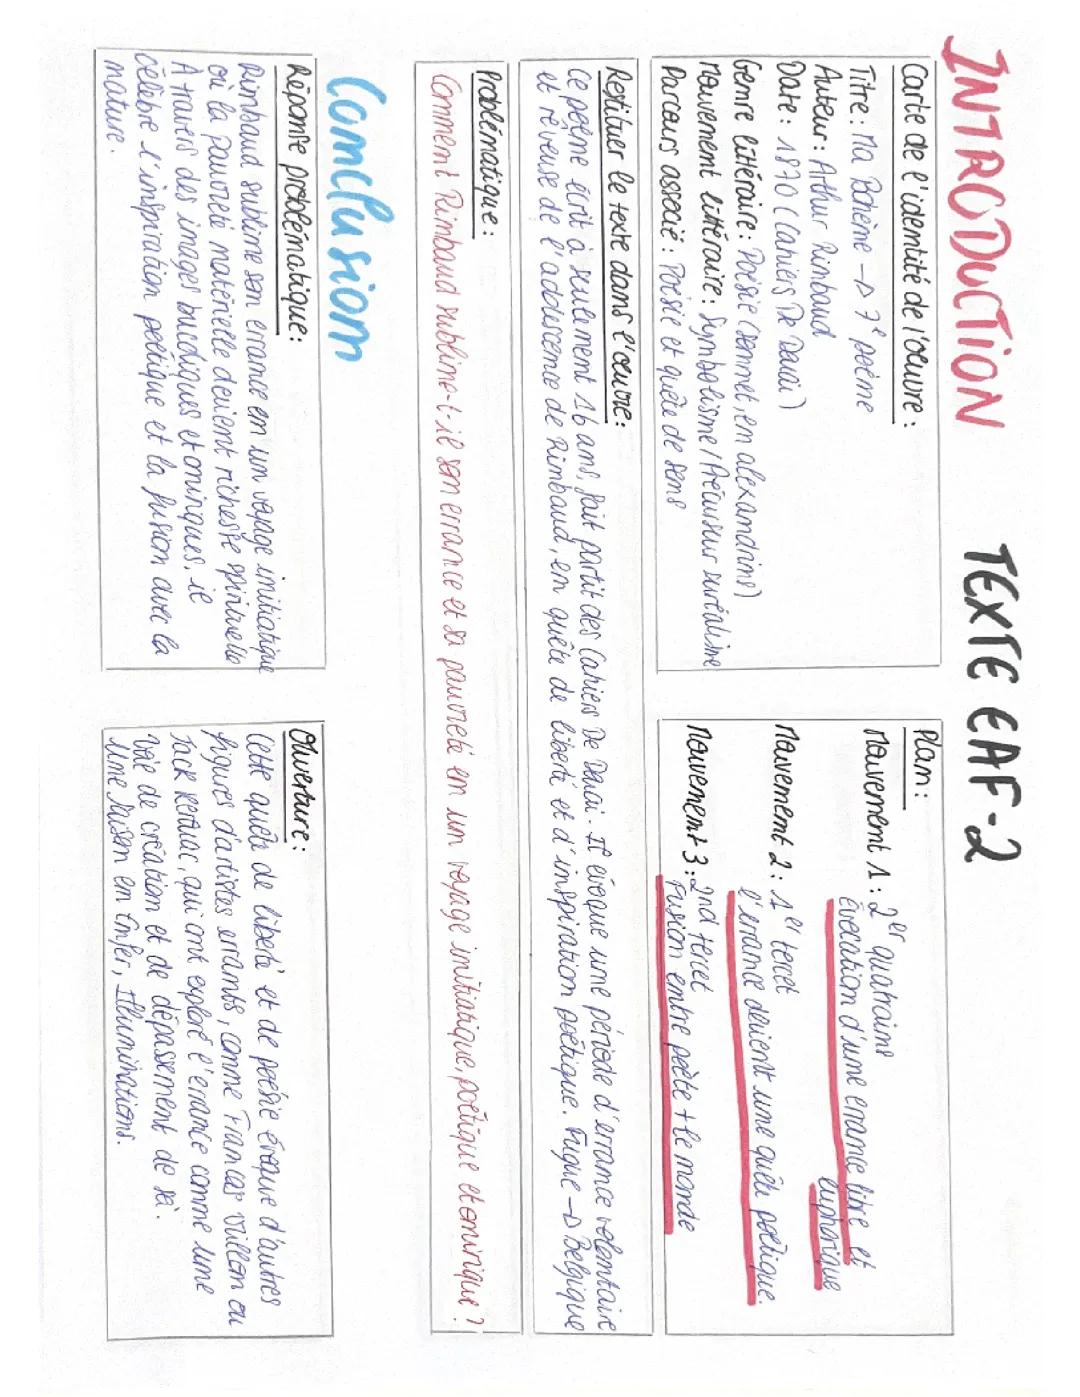 INTRODUCTION TEXTE EAF-2
Carte de l'identité de l'œuvre :
Titre : Ma Bohème → 7e poème
Auteur : Arthur Rimbaud
Date : 1870 (Cahiers De Douai)
Genre littéraire : Poésie (sonnet, en alexandrins)
Mouvement littéraire : Symbolisme / Précurseur surréalisme
Parcours associé : Poésie et quête de sens
Plan :
Mouvement 1 : 2er quatrains
Évocation d'une errance libre et
euphorique
Mouvement 2 : 1er tercet
l'errance devient une quête poétique.
Mouvement 3 : 2nd tercet
Fusion entre poète + le monde
Restituer le texte dans l'œuvre :
Ce poème écrit à seulement 16 ans, fait partit des Cahiers De Douai. Il évoque une période d'errance volontaire
et rêveuse de l'adolescence de Rimbaud, en quête de liberté et d'inspiration poétique. Fugue → Belgique
Problématique :
Comment Rimbaud sublime-t-il son errance et sa pauvreté en un voyage initiatique, poétique et onirique ?
Conclusion
Réponse problématique :
Rimbaud sublime son errance en un voyage initiatique
où la pauvreté matérielle devient richesse spirituelle
À travers des images bucoliques et oniriques, il
célèbre l'inspiration poétique et la fusion avec la
nature.
Ouverture :
Cette quête de liberté et de poésie évoque d'autres
figures d'artistes errants, comme Francois Villon ou
Jack Kerouac, qui ont exploré l'errance comme une
voie de création et de dépassement de soi.
Une Saison en Enfer, Illuminations.